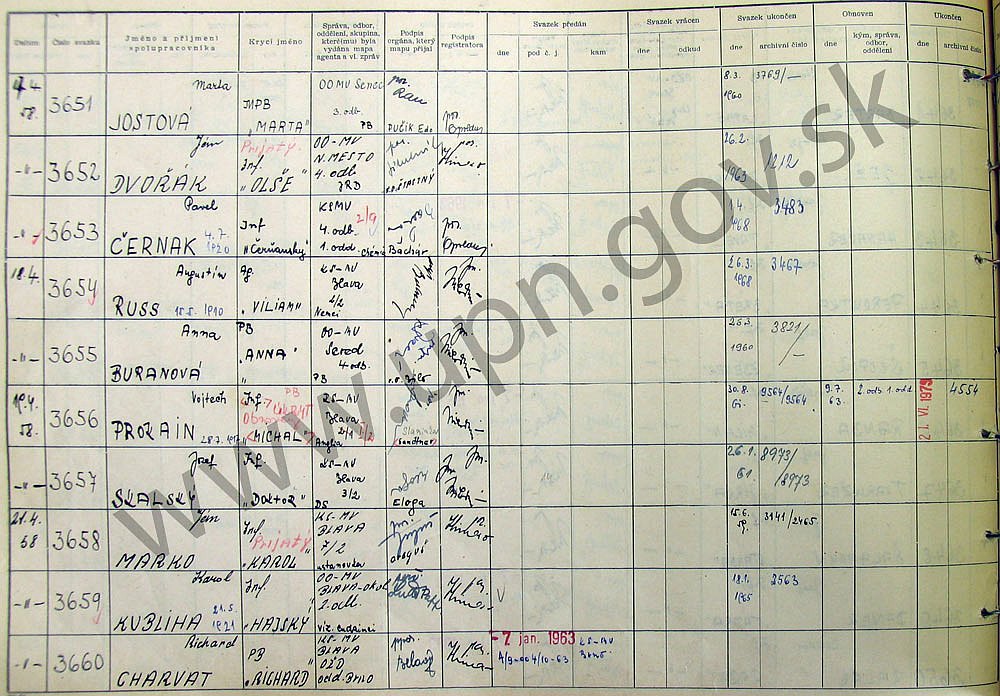 Datum
Číslo svazku
Jméno a příjmení
spolupracovníka
Krycí jméno
Správa, odbor,
oddělení, skupina,
kterému(i) byla
vydána mapa
agenta a vl. zpráv
Podpis
orgána, který
mapu přijal
Podpis
registratora
Svazek předán
dne
pod č. j.
kam
Svazek vrácen
dne
odkud
Svazek ukončen
dne
archivní číslo
Obnoven
dne
kým, správa,
odbor,
oddělení
Ukončen
dne
archivní číslo
58.
3651
Marta
JOSTOVÁ
MPB
"MARTA"
OO MV Senec
3. odb.
PB
por.
8.3.
1960
3769/-
-"-
3652
Ján
DVOŘAK
Prijatý.
Inf.
"OLŠE"
OO-MV
N. MESTO
4. odb
JRD
26.2.
1963
1212
-"-
3653
Pavel
ČERNAK
4.7.
1920
Inf
"Čerňanský"
KSMV
2/9
4. odb.
1. odd.
Báchor
por.
1.4.
1968
3483
18.4.
3654
Augustín
RUSS
15.5. 1910
Ag.
"VILIAM"
KS-MV
Blava
2/2
Nemci
26.3.
1968
3467
-"-
3655
Anna
BURANOVÁ
PB
"ANNA"
OO-MV
Sereď
4. odb.
PB
1960
3821/-
19.4.
58.
3656
Vojtech
PROKAIN
Inf.
PB
"MICHAL"
KS-MV
Blava
2/1
Anglia
Sandtner
30.8.
61.
9564/9564
9.7.
63.
2. odb. 1. odd.
21. VI. 1973
4554
-"-
3657
Jozef
SKALSKÝ
Inf.
"DOKTOR"
KS-MV
Blava
3/2
DS
Eloga
26.1.
61.
8973/
/8973
21.4.
58
3658
Ján
MARKO
Inf.
Prijatý
"KAROL"
KS-MV
BLAVA
7/2
ustanovka
15.6.
59.
3141/2465
-"-
3659
Karol
KUBLIHA
21.5.
1921
Inf.
"HAJSKY"
OO-MV
BLAVA-okol.
2. odb.
V
18.1.
1965
2563
-"-
3660
Richard
CHARVAT
PB
"RICHARD"
KS-MV
BLAVA
OŽD
odd. Brno
-7 jan. 1963
A/9-004/10-63
KS-MV
Brno
www.upn.gov.sk